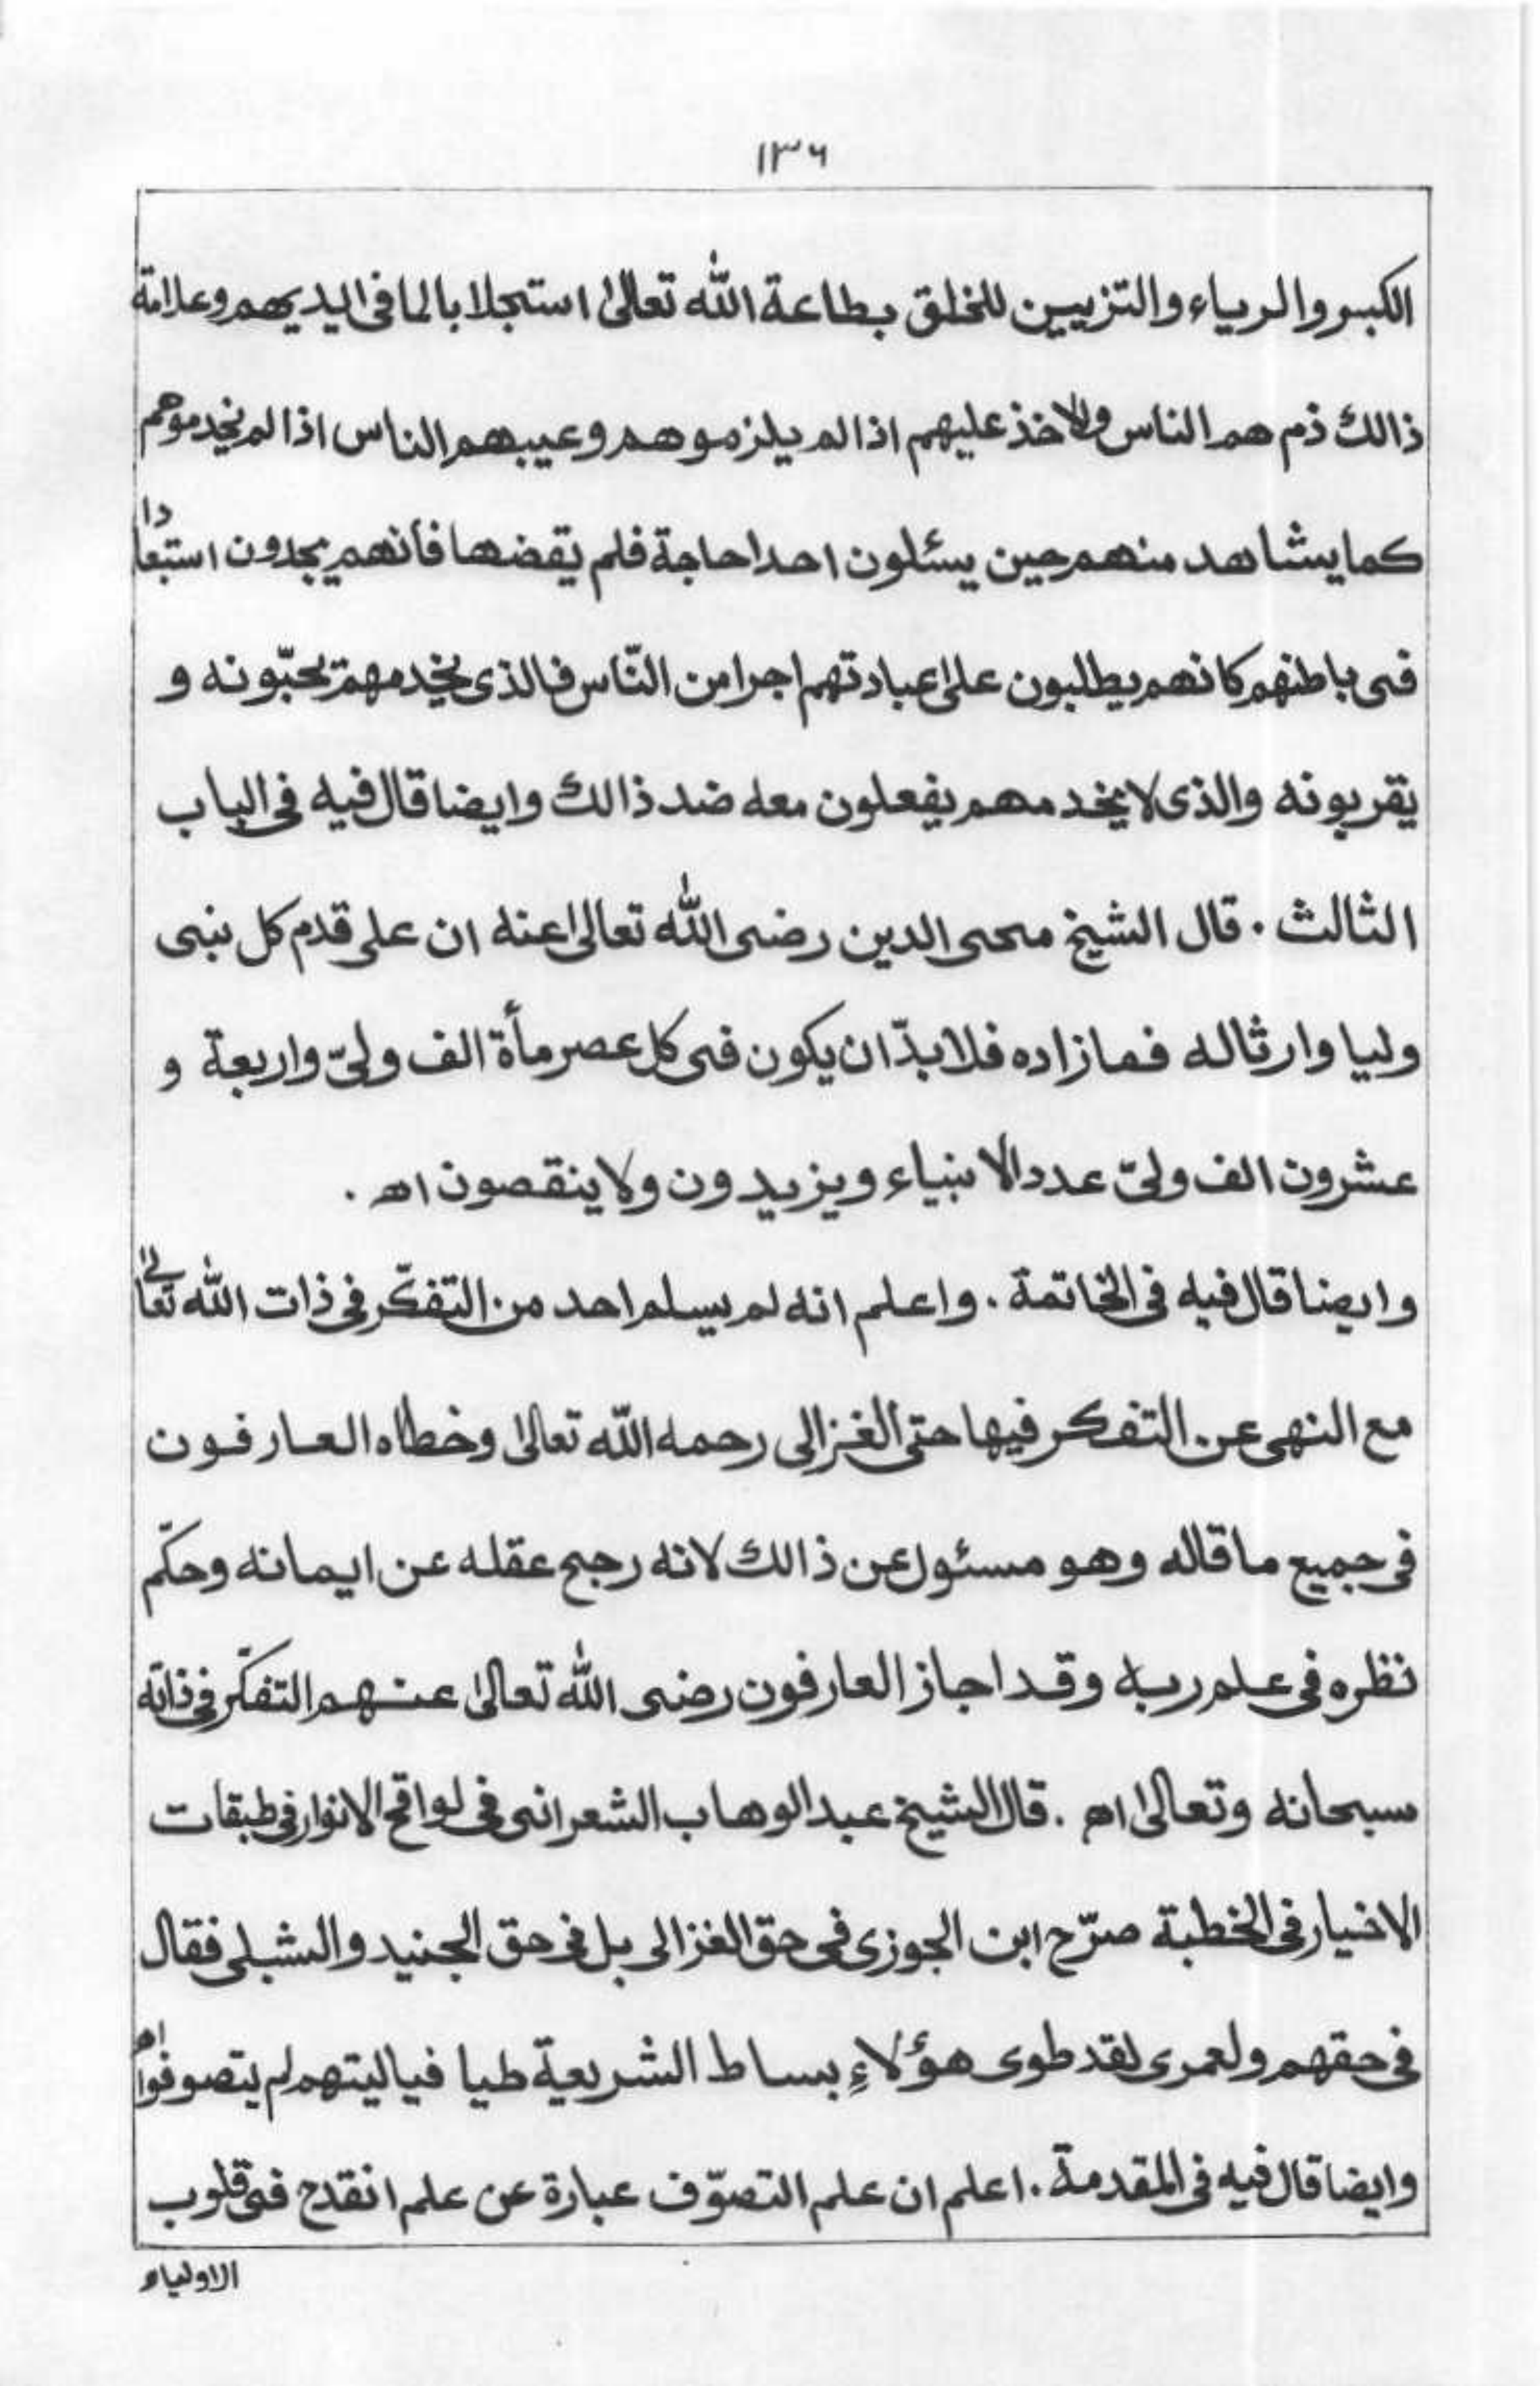 ١٣٦
الكبر والرياء والتزيين للخلق بطاعة الله تعالى استجلابا لما فى ايديهم وعلامة
ذالك ذم هم الناس والاخذ عليهم اذا لم يلزموهم وعيبهم الناس اذا لم يخدموهم
كما يشاهد منهم حين يسئلون احدا حاجة فلم يقضها فأنهم يجدون استبعادا
فى باطنهم كانهم يطلبون على عبادتهم اجرا من النّاس فالذى يخدمهم تحبّونه و
يقربونه والذى لا يخدمهم يفعلون معه ضد ذالك وايضا قال فيه فى الباب
الثالث · قال الشيخ محى الدين رضى الله تعالى عنه ان على قدم كل نبى
وليا وارثا له فمازاده فلا بدّ ان يكون فى كل عصر مأة الف ولىّ واربعة و
عشرون الف ولىّ عدد الانبياء ويزيدون ولا ينقصون اھ ·
وايضا قال فيه فى الخاتمة · واعلم انه لم يسلم احد من التفكّر فى ذات الله تعالى
مع النهى عن التفكر فيها حتى الغزالى رحمه الله تعالى وخطاه العارفون
فى جميع ما قاله وهو مسئول عن ذالك لانه رجح عقله عن ايمانه وحكّم
نظره فى علم ربه وقد اجاز العارفون رضى الله تعالى عنهم التفكّر فى ذاته
سبحانه وتعالى اھ · قال الشيخ عبد الوهاب الشعرانى فى لواقح الانوار فى طبقات
الاخيار فى الخطبة صرّح ابن الجوزى فى حق الغزالى بل فى حق الجنيد والشبلى فقال
فى حقهم ولعمرى لقد طوى هؤلاءِ بساط الشريعة طيا فياليتهم لم يتصوفوا اھ
وايضا قال فيه فى المقدمة · اعلم ان علم التصوّف عبارة عن علم انقدح فى قلوب
الاولياء